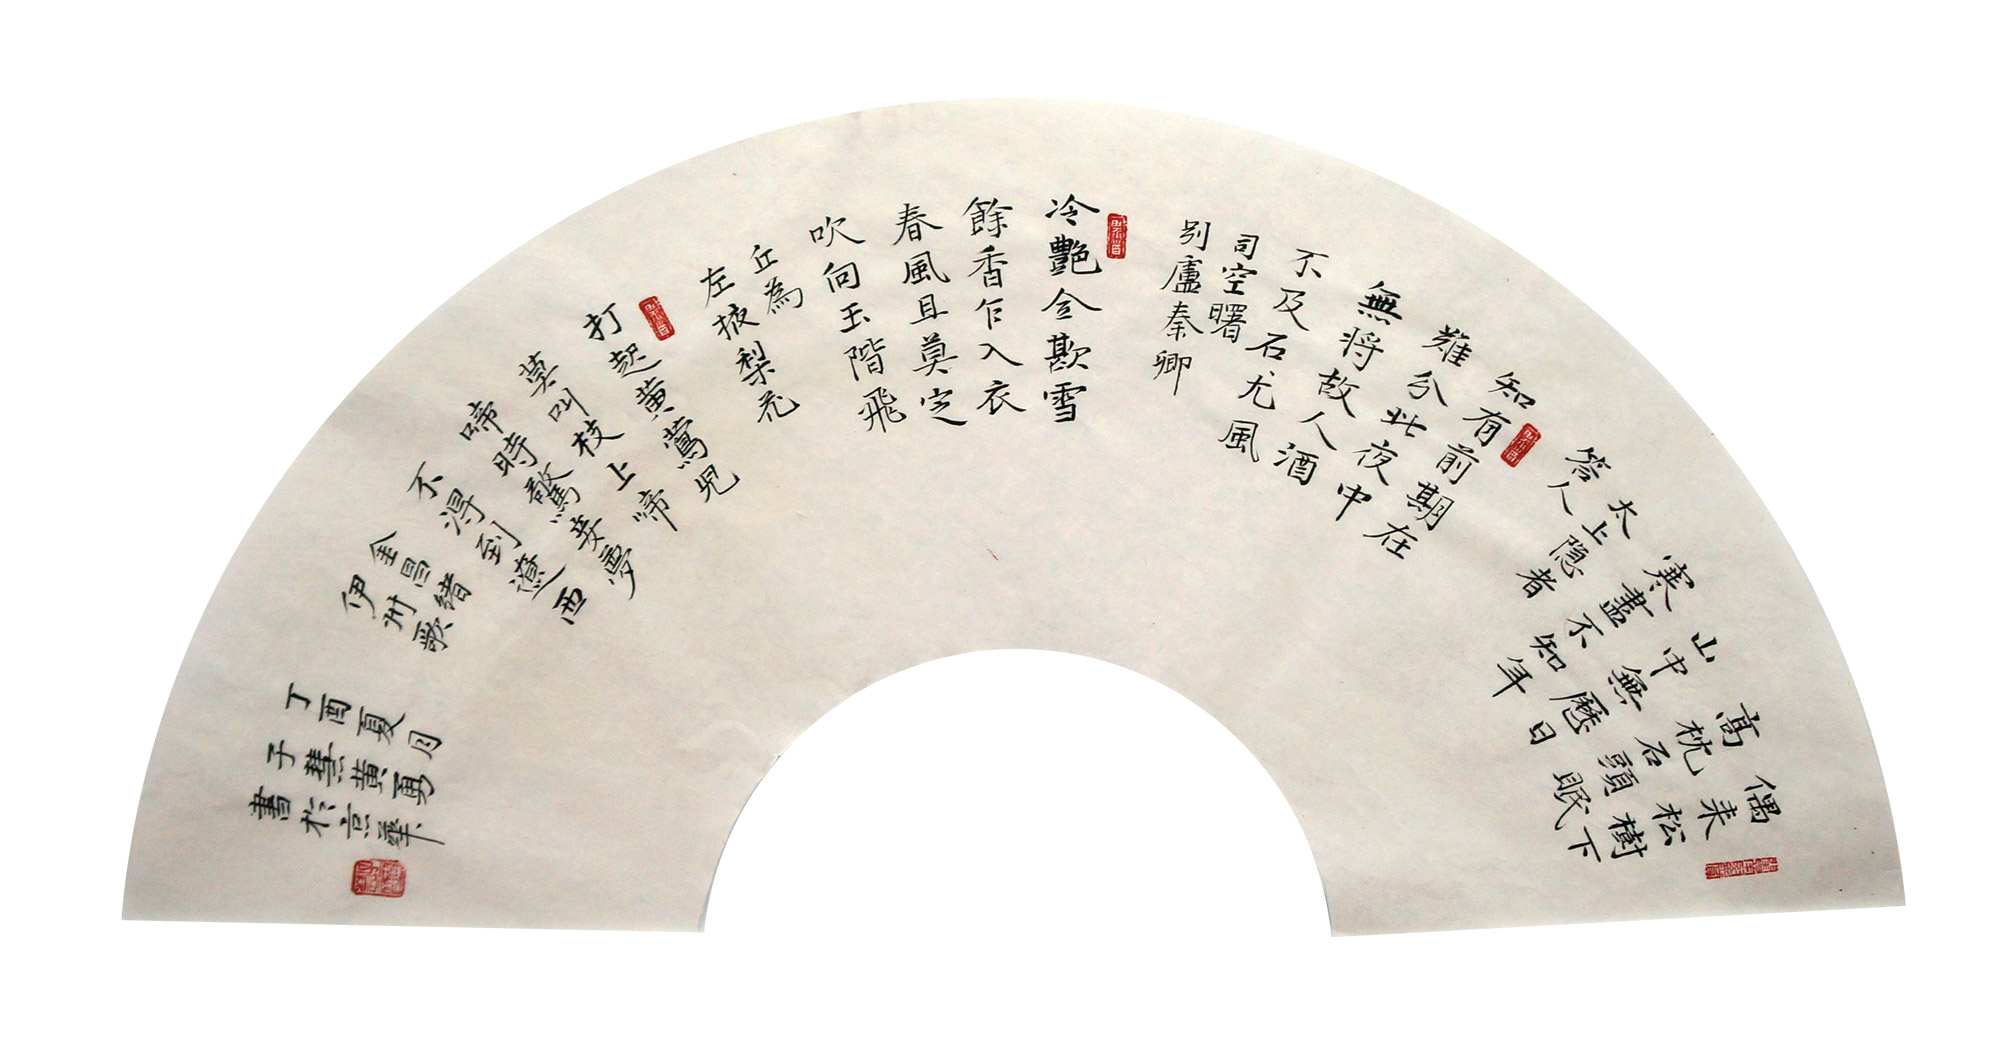 偶来松樹下
高枕石頭眠
山中無曆日
寒盡不知年
太上隐者
答人
知有前期在
難分此夜中
無将故人酒
不及石尤風
司空曙
别盧秦卿
冷艷全欺雪
餘香乍入衣
春風且莫定
吹向玉階飛
丘為
左掖梨花
打起黄鶯兒
莫叫枝上啼
啼時驚妾夢
不得到遼西
金昌緒
伊州歌
丁酉夏月
子慧黄勇
書於京華